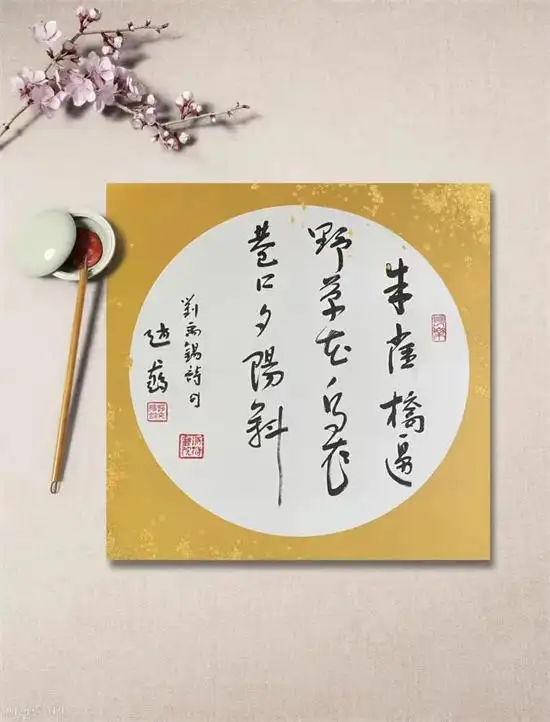 朱雀橋邊
野草花烏衣
巷口夕陽斜
劉禹錫詩句